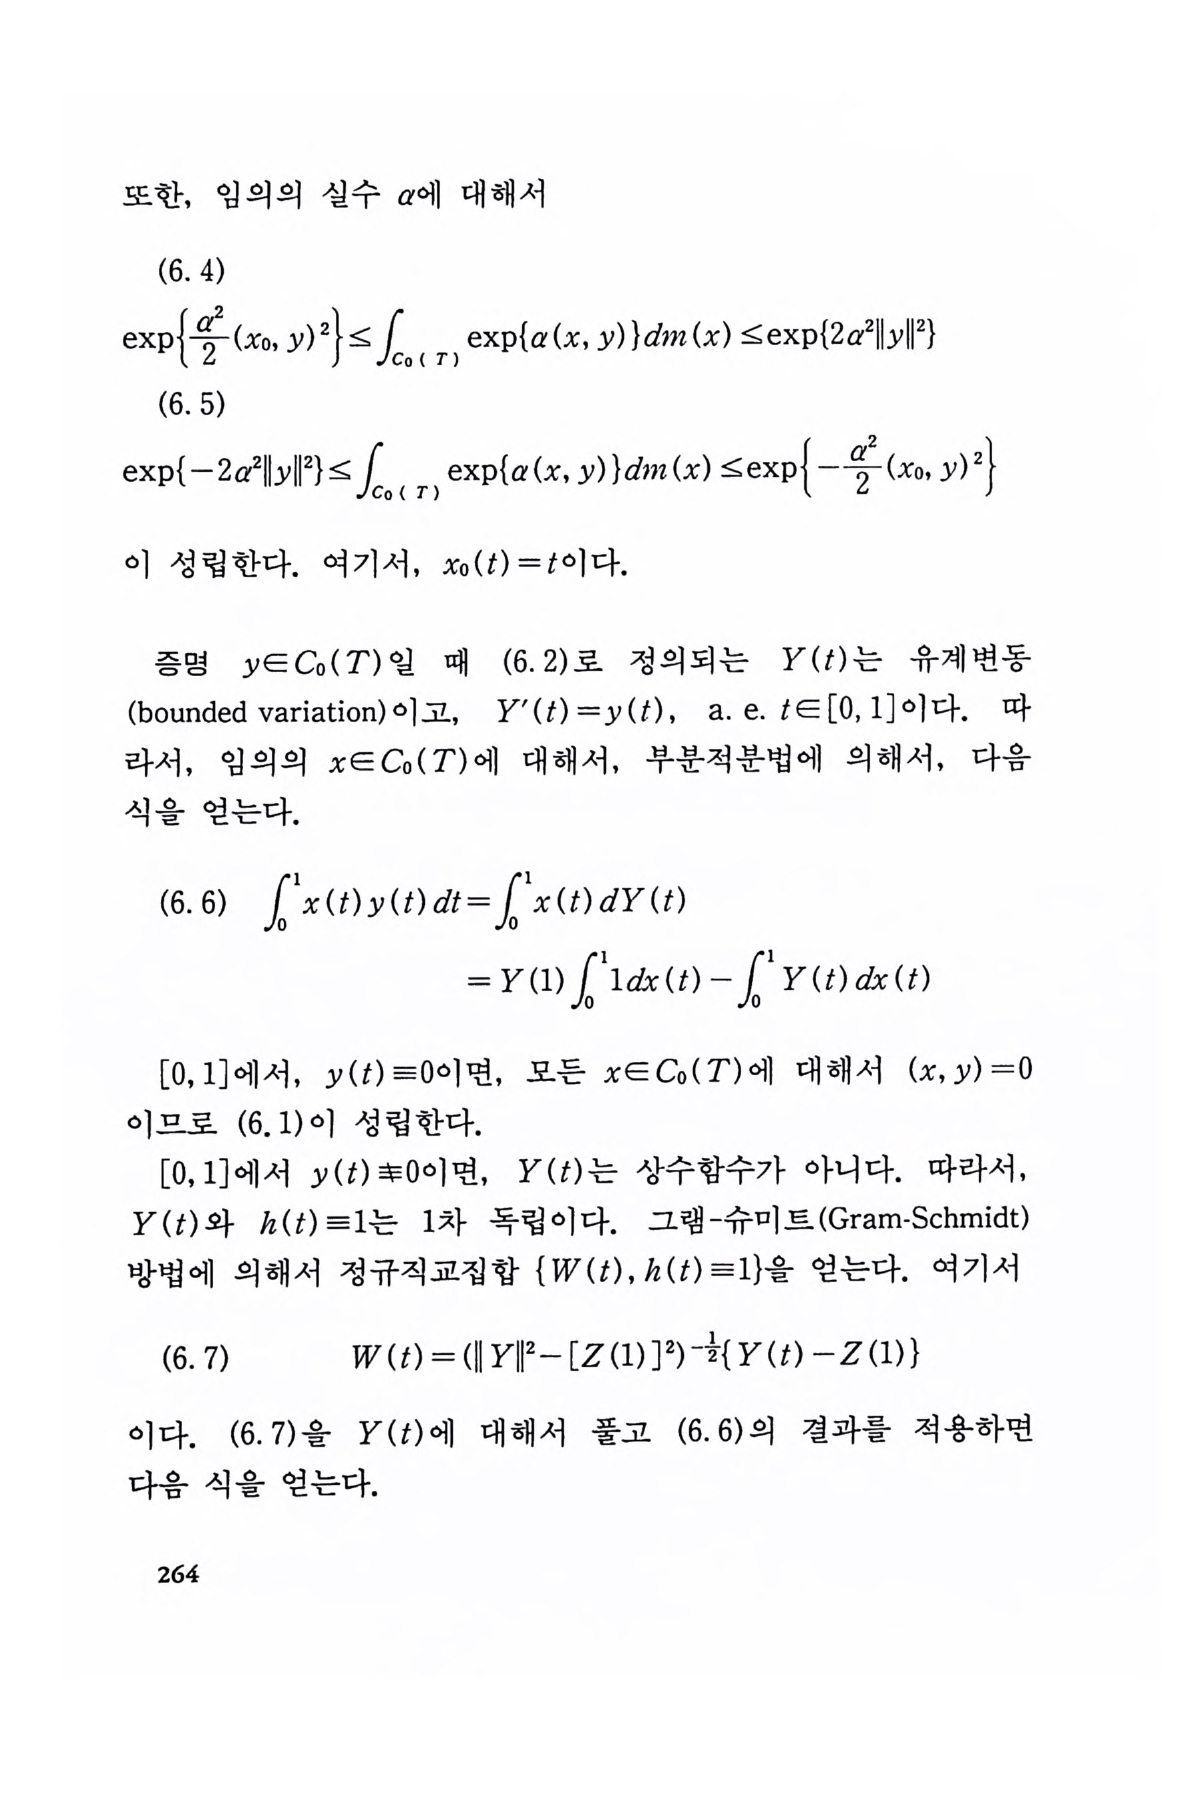 또한, 임의의 실수 α에 대해서
(6. 4)
exp{α²/2 (x₀, y)²}≤∫_{C₀(T)} exp{α(x, y)}dm(x)≤exp{2α²‖y‖²}
(6. 5)
exp{−2α²‖y‖²}≤∫_{C₀(T)} exp{α(x, y)}dm(x)≤exp{−α²/2 (x₀, y)²}
이 성립한다. 여기서, x₀(t)=t이다.
증명 y∈C₀(T)일 때 (6. 2)로 정의되는 Y(t)는 유계변동
(bounded variation)이고, Y′(t)=y(t), a. e. t∈[0, 1]이다. 따
라서, 임의의 x∈C₀(T)에 대해서, 부분적분법에 의해서, 다음
식을 얻는다.
(6. 6) ∫₀¹x(t)y(t)dt=∫₀¹x(t)dY(t)
=Y(1)∫₀¹1dx(t)−∫₀¹Y(t)dx(t)
[0, 1]에서, y(t)≡0이면, 모든 x∈C₀(T)에 대해서 (x, y)=0
이므로 (6. 1)이 성립한다.
[0, 1]에서 y(t)≢0이면, Y(t)는 상수함수가 아니다. 따라서,
Y(t)와 h(t)≡1는 1차 독립이다. 그램-슈미트(Gram-Schmidt)
방법에 의해서 정규직교집합 {W(t), h(t)≡1}을 얻는다. 여기서
(6. 7) W(t)=(‖Y‖²−[Z(1)]²)^{−1/2}{Y(t)−Z(1)}
이다. (6. 7)을 Y(t)에 대해서 풀고 (6. 6)의 결과를 적용하면
다음 식을 얻는다.
264